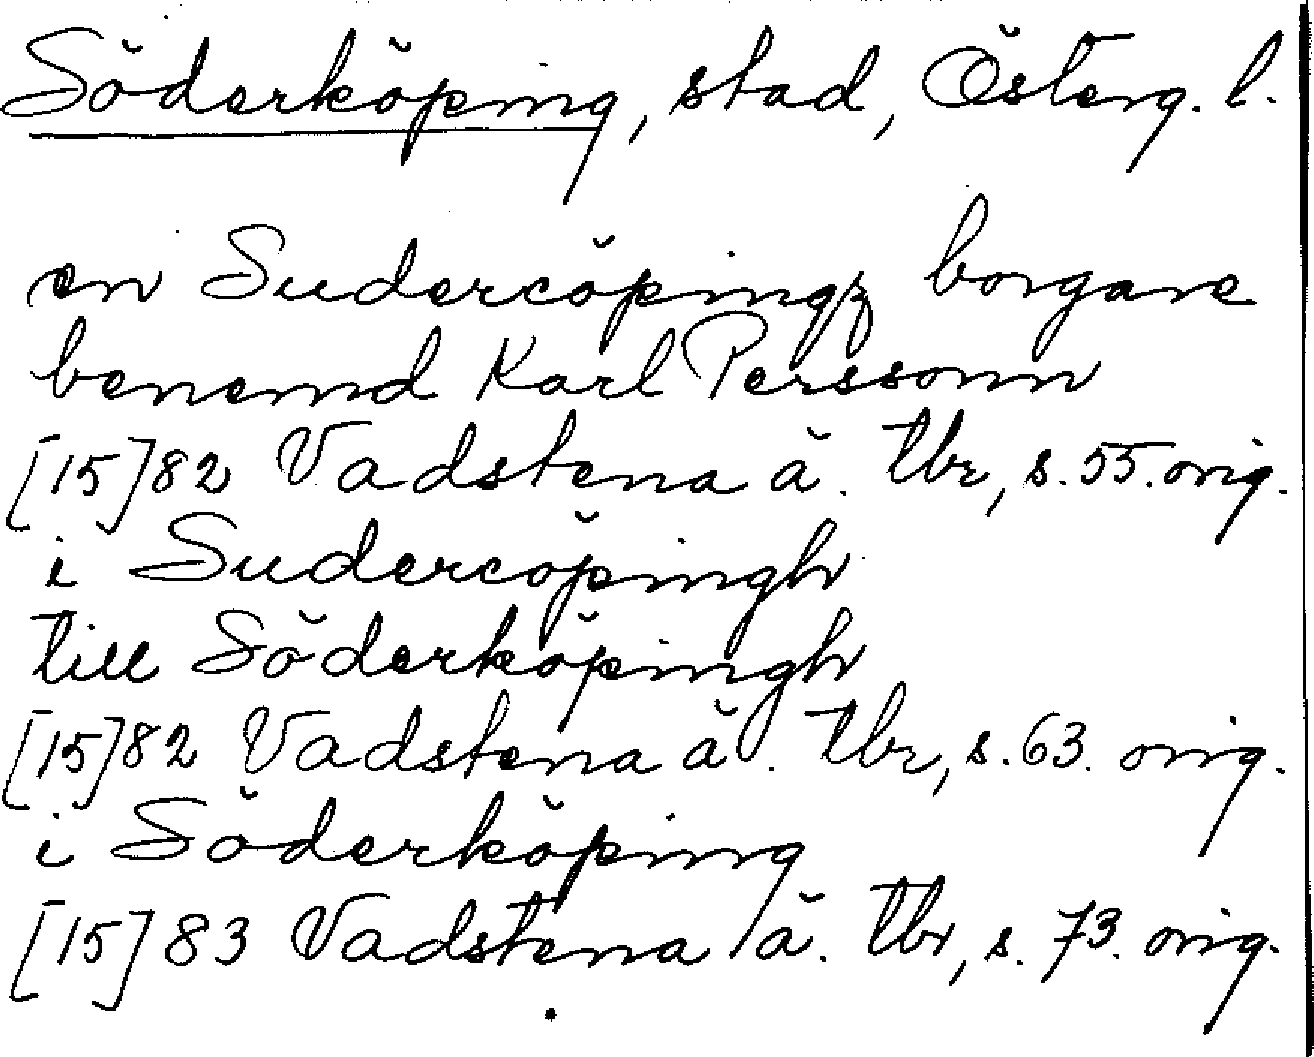 Söderköping, stad, Österg. l.
en Sudercöpingz borgare
benemd Karl Perssonn
[15]82 Vadstena ä. tbr, s. 55. orig.
i Sudercöpingh
till Söderköpingh
[15]82 Vadstena ä. tbr, s. 63. orig.
i Söderköping
[15]83 Vadstena ä. tbr, s. 73. orig.